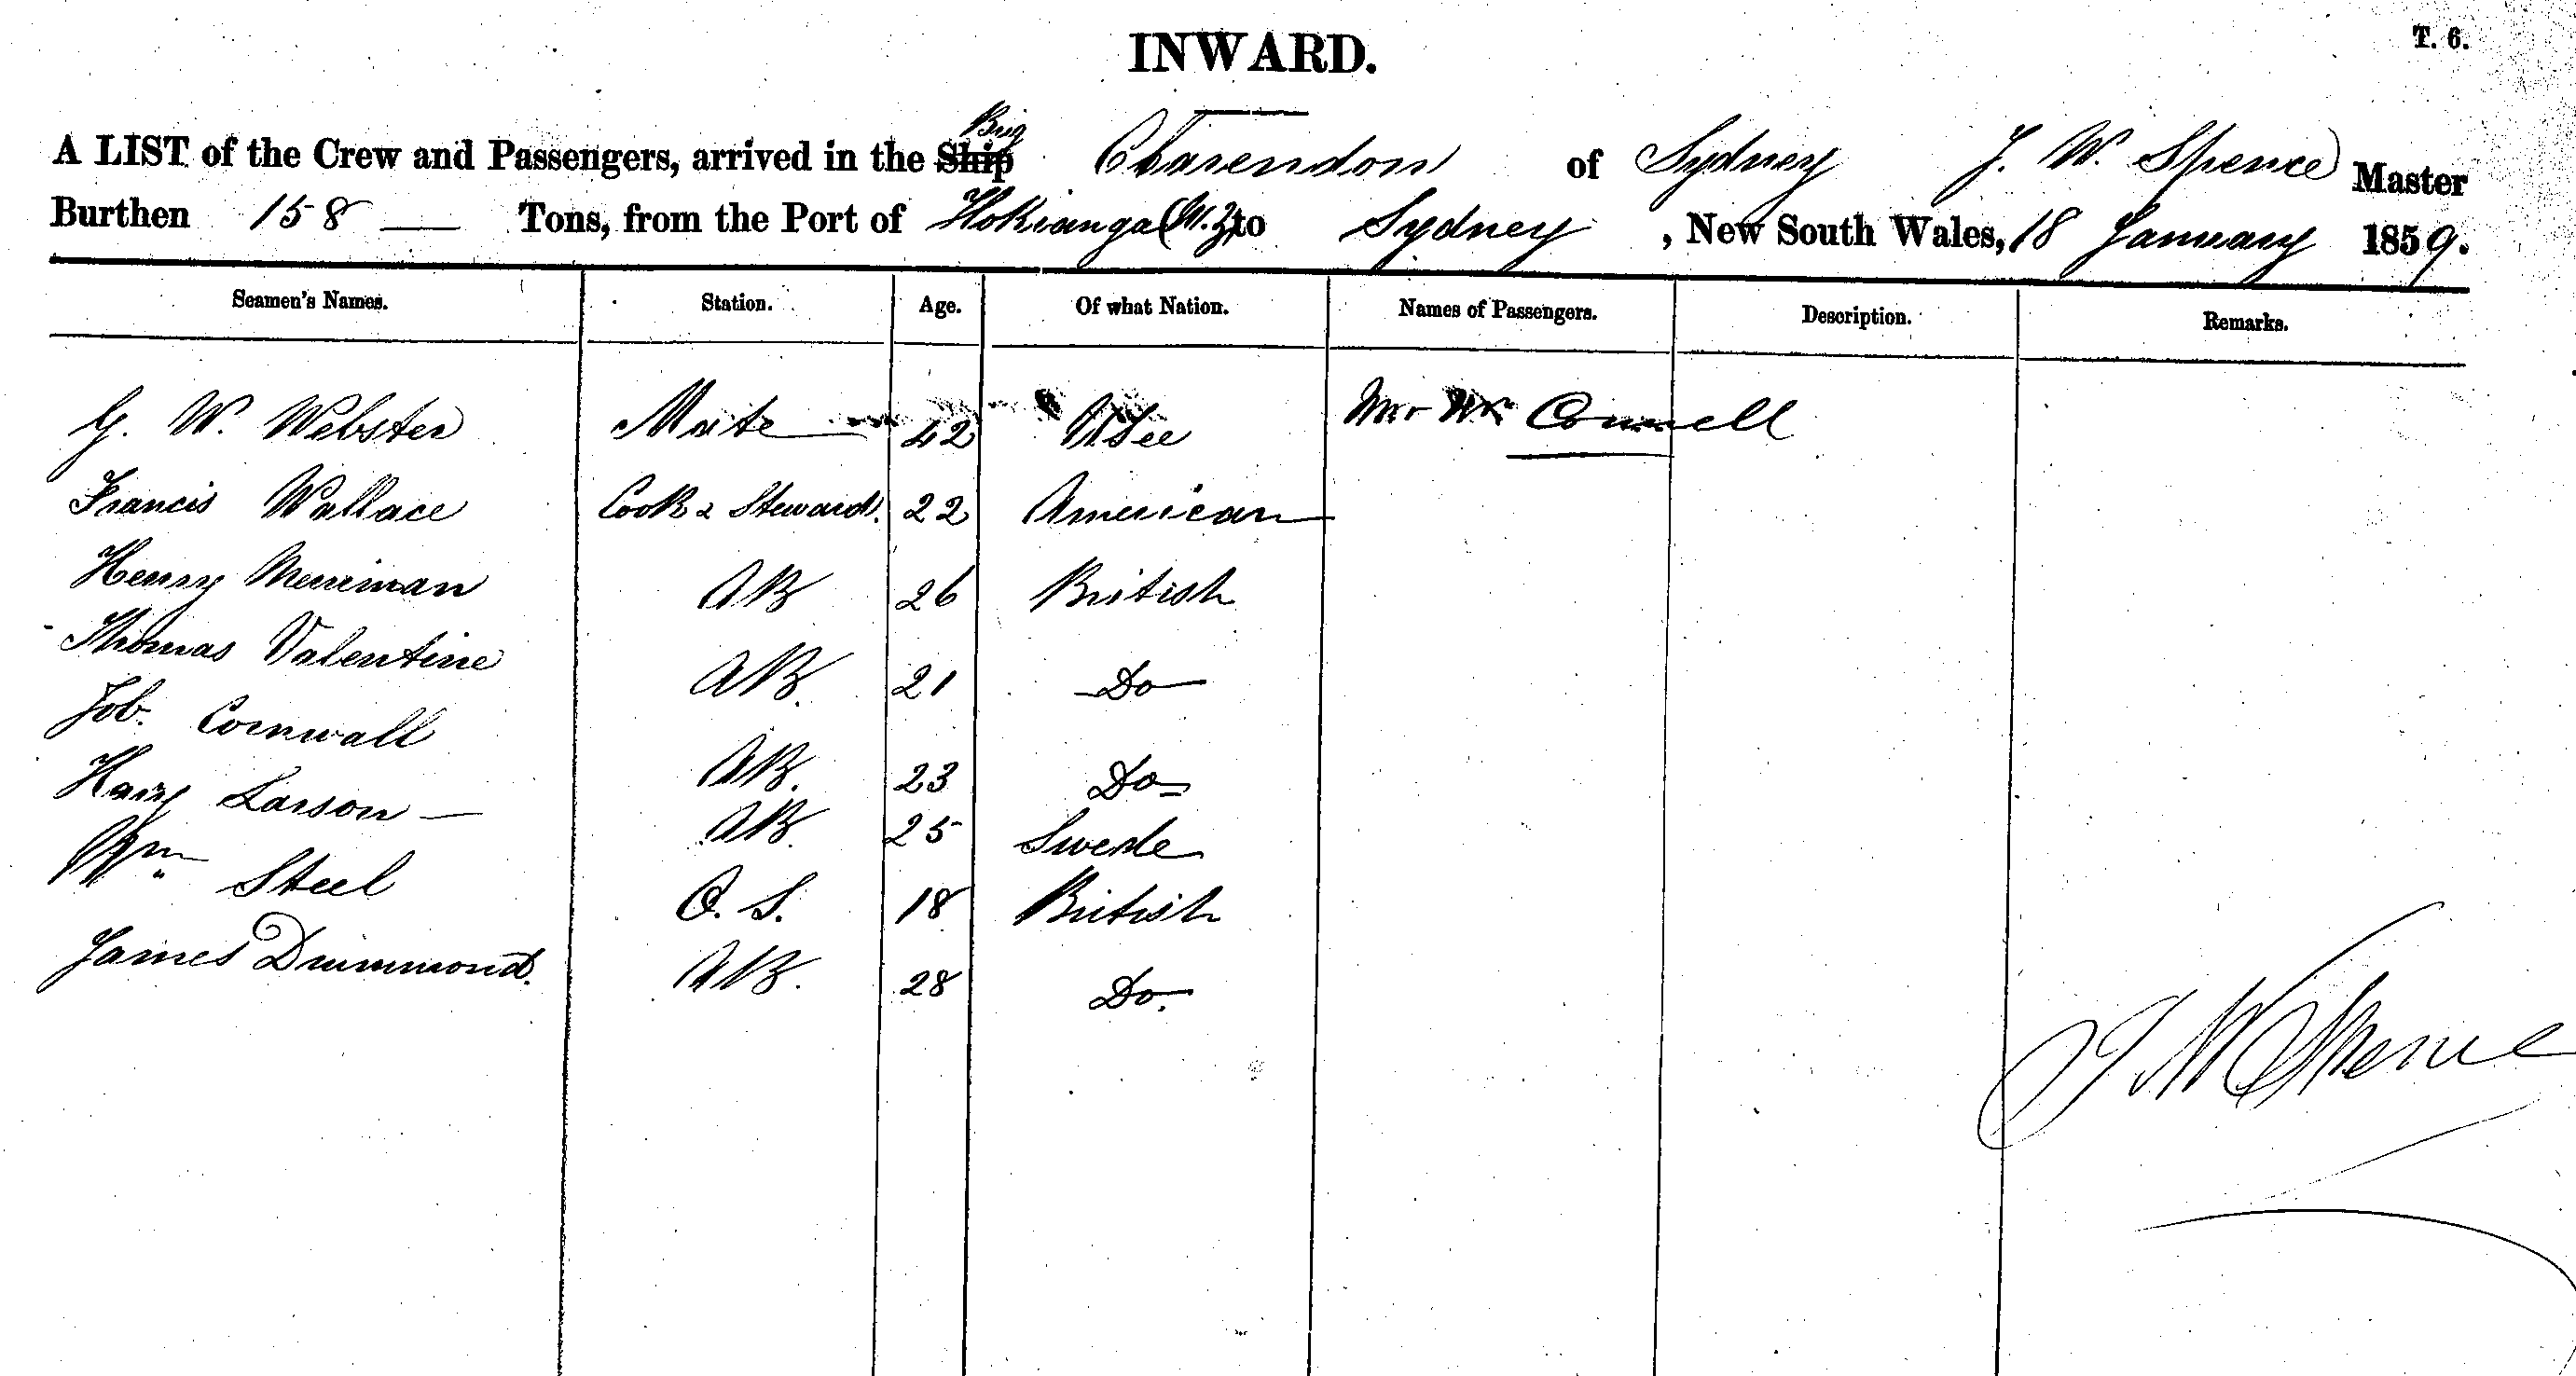 INWARD.
T. 6.
Brig
A LIST of the Crew and Passengers, arrived in the Ship Clarendon of Sydney J. W. Spence Master
Burthen 158 — Tons, from the Port of Hokianga (N.Z) to Sydney, New South Wales, 18 January 1859.
Seamen's Names. Station. Age. Of what Nation. Names of Passengers. Description. Remarks.
G. W. Webster Mate 42 Mr Connell
Francis Wallace Cook & Steward. 22 American
Henry Merriman AB 26 British
Thomas Valentine AB. 21 Do
Job. Cornwall AB. 23 Do
Harry Larson — AB. 25 Swede
Wm Steel O. S. 18 British
James Drummond. AB. 28 Do.
J W Spence